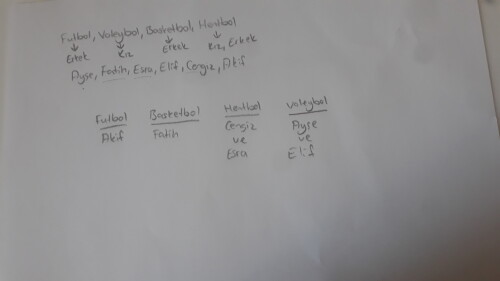 Futbol, Voleybol, Basketbol, Hentbol
Erkek Kız Erkek Kız, Erkek
Ayşe, Fatih, Esra, Elif, Cengiz, Akif
Futbol Basketbol Hentbol Voleybol
Akif Fatih Cengiz Ayşe
ve ve
Esra Elif